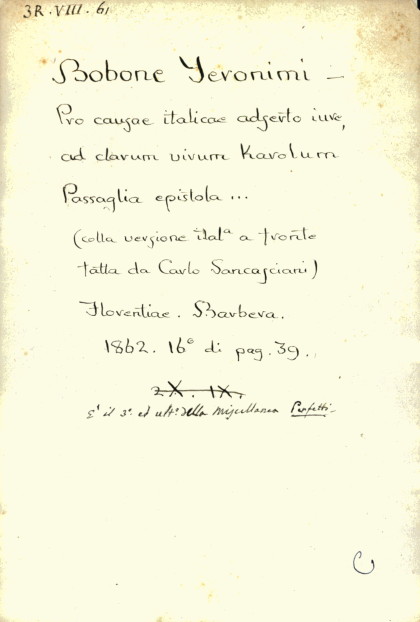 3R. VIII. 61
Bobone Jeronimi –
Pro causae italicae adserto iure,
ad clarum virum Karolum
Passaglia epistola ...
(colla versione ital.ª a fronte
fatta da Carlo Sancasciani)
Florentiae. Barbera.
1862. 16° di pag. 39.
2X. IX.
E' il 3° ed ult° della miscellanea Perfetti –
C